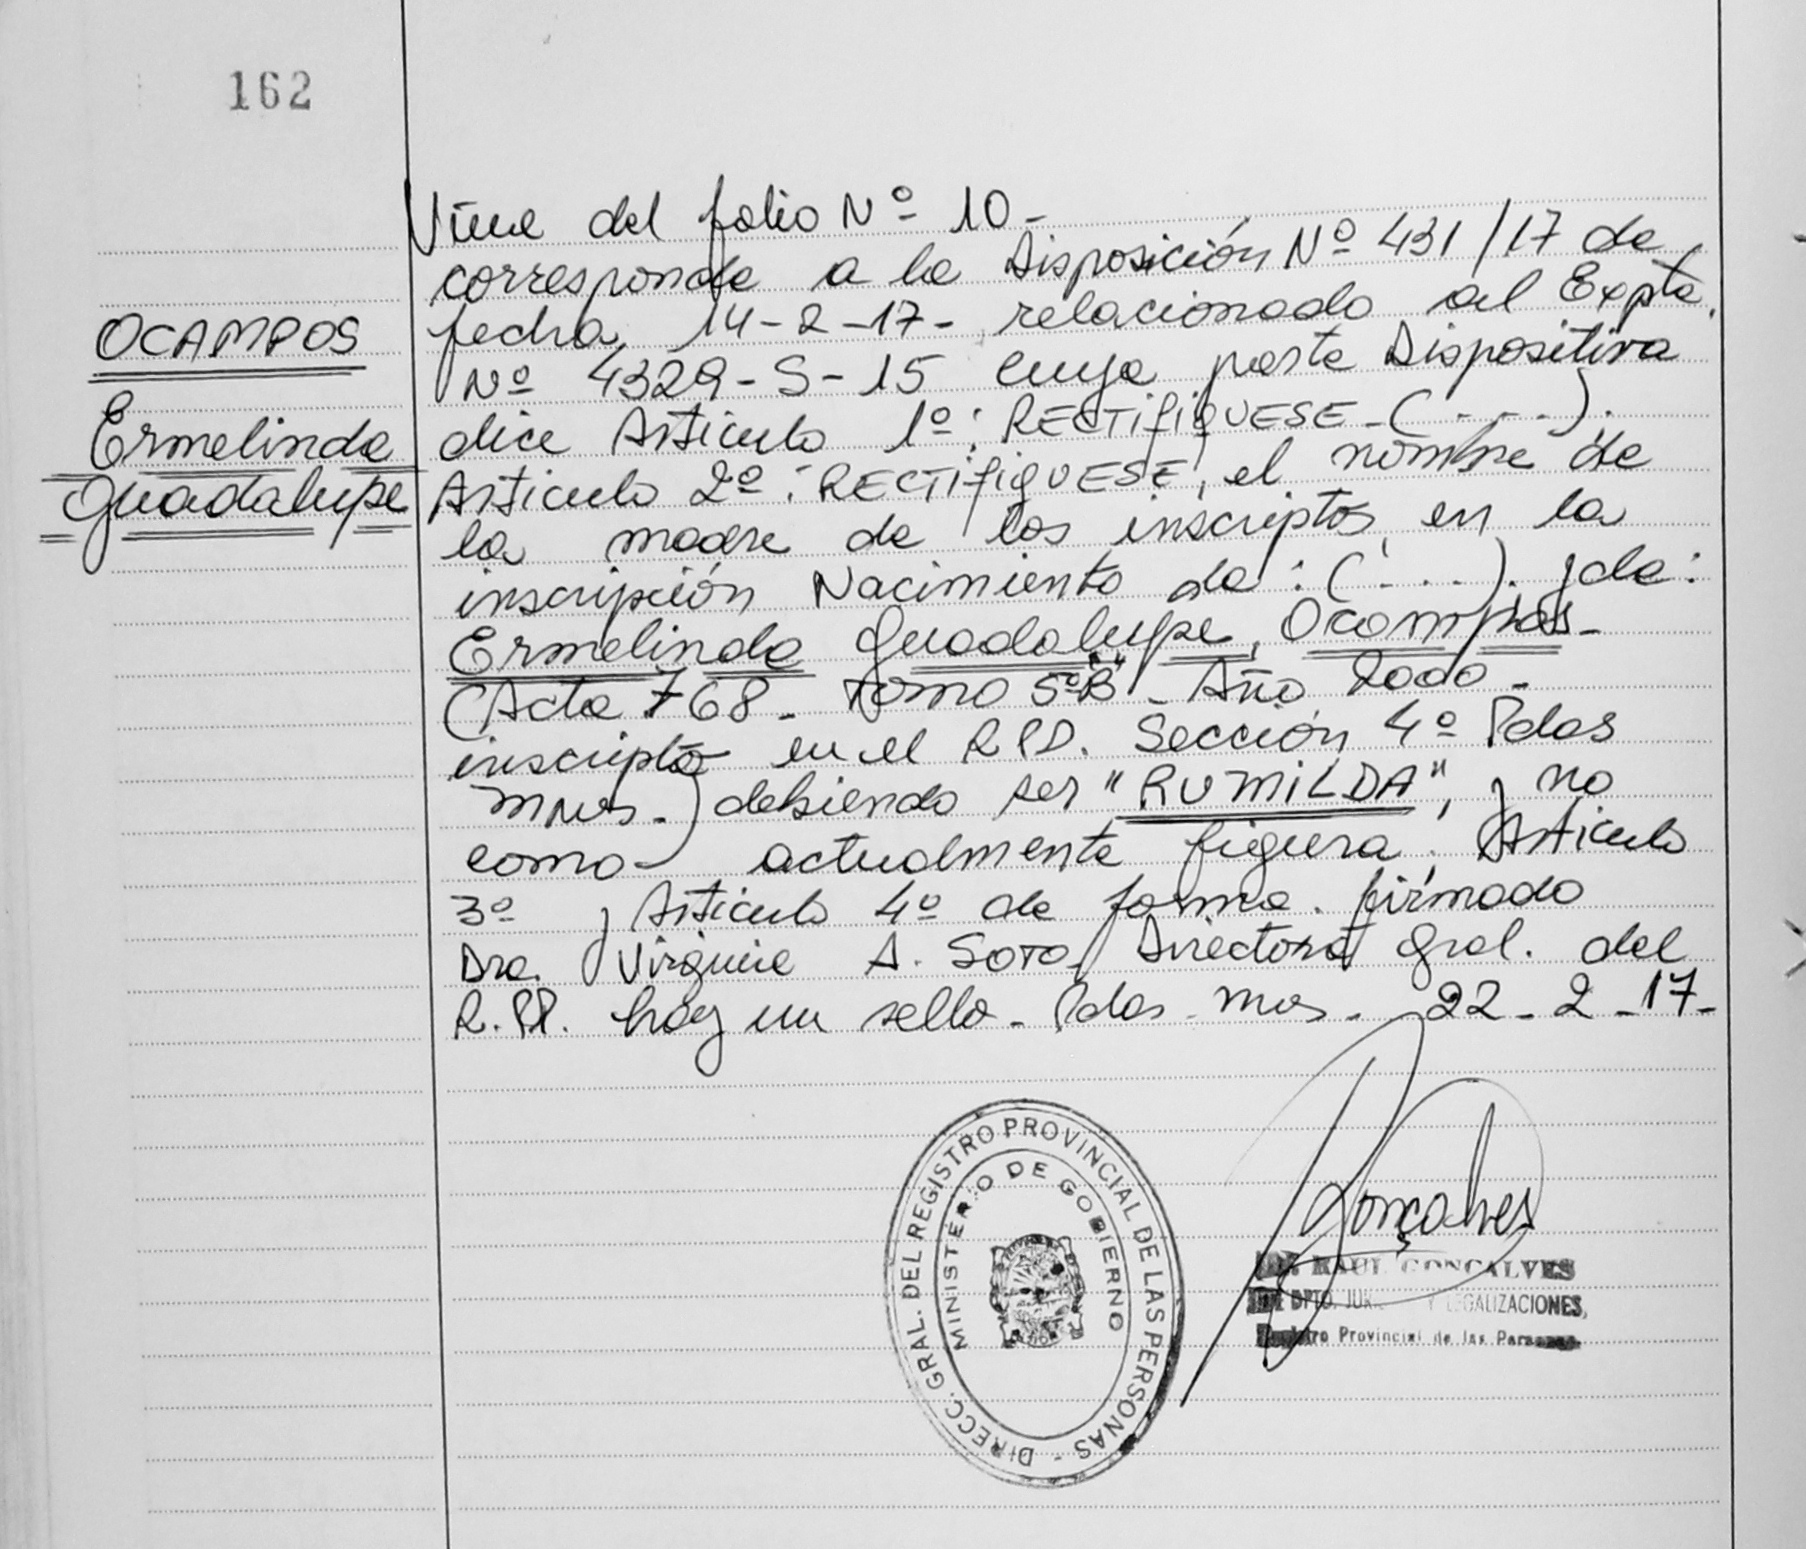 162
OCAMPOS
Ermelinda
Guadalupe
Viene del folio Nº 10-
corresponde a la Disposición Nº 431/17 de
fecha 14-2-17- relacionado al Expte.
Nº 4329-S-15 cuya parte Dispositiva
dice Artículo 1º: RECTIFIQUESE-(----).
Artículo 2º: RECTIFIQUESE, el nombre de
la madre de los inscriptos en la
inscripción Nacimiento de: (----). y de:
Ermelinda Guadalupe, Ocampos-
(Acta 768- Tomo 5º"B"- Año 2000-
inscripta en el RPP. Sección 4º Pdas
Mnes-) debiendo ser "RUMILDA", y no
como actualmente figura. Artículo
3º y Artículo 4º de forma. firmado
Dra. Virginia A. Soto, Directora Gral. del
R.PP. hay un sello- Pdas. Mnes. 22-2-17-
Gonçalves
RAUL GONCALVES
DPTO. JUR Y LEGALIZACIONES,
Registro Provincial de las Personas
DIRECC. GRAL. DEL REGISTRO PROVINCIAL DE LAS PERSONAS -
MINISTERIO DE GOBIERNO